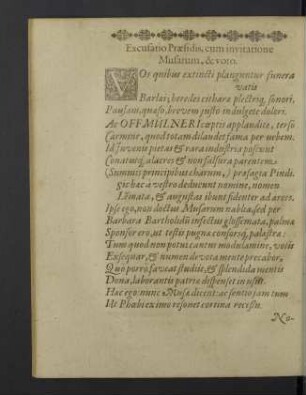 Excusatio Præsidis, cum invitatione
Musarum, & voto.
VOs quibus extincti planguntur funera
vatis
Barlæi, heredes citharæ plectriq; sonori,
Pausam, quæso, brevem justo indulgete dolori.
Ac OFFMULNERI cœptis applaudite, terso
Carmine, quod totam dilaudet fama per urbem.
Id Juvenis pietas & rara industria poscunt
Conatuq; alacres & non falsura parentem
(Summis principibus charum,) præsagia Pindi.
hæc à vestro debeunt nomine, nomen
& augustas ibunt fidenter ad arces.
Ipse ego, non doctas Musarum nabla, sed per
Barbara Bartholdii infectus glossemata, palma
Sponsor ero, ut testis pugna consorsq; palæstra:
Tum quod non potui cantu modulamine, votis
Exsequar, & numen devota mente precabor,
Quo porrò faveat studiis, & splendida mentis
Dona, laborantis patriæ dispenset in usus.
Hac ego: nunc Musæ dicent: ac sentio jam tum
Ut Phœbi eximio resonet cortina recessu.
No-